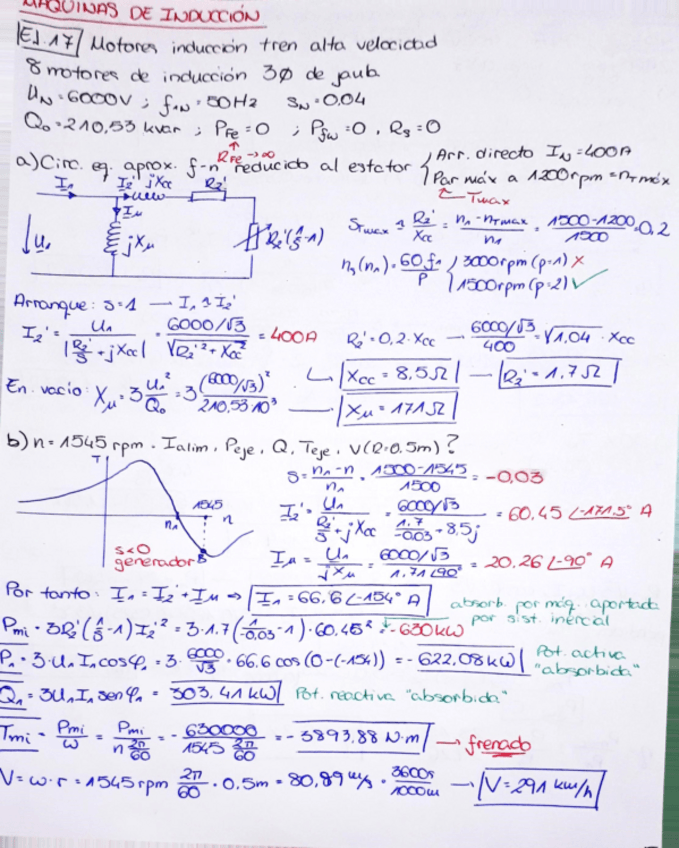 MÁQUINAS DE INDUCCIÓN
EJ.17 Motores inducción tren alta velocidad
8 motores de inducción 3ϕ de jaula
U_N = 6000V ; f_1N = 50Hz S_N = 0,04
Q_0 = 210,53 kvar ; P_Fe = 0 ; P_fw = 0 , R_s = 0
R_Fe → ∞
a) Circ. eq. aprox. f-n reducido al estator { Arr. directo I_N = 400A
Par máx a 1200rpm = n_Tmáx
T_max
I_1 I_2' jX_cc R_2'
I_μ
U_1 jX_μ R_2'(1/S - 1)
S_Tmax ≈ R_2'/X_cc = (n_1 - n_Tmax)/n_1 = (1500-1200)/1500 = 0,2
n_s(n_1) = 60f_1/P { 3000rpm (p=1) ✗
1500rpm (p=2) ✓
Arranque: S=1 — I_1 ≈ I_2'
I_2' = U_1/|R_2'/S + jX_cc| = (6000/√3)/√(R_2'² + X_cc²) = 400A R_2' = 0,2 · X_cc — (6000/√3)/400 = √1,04 · X_cc
X_cc = 8,5Ω — R_2' = 1,7Ω
En vacío: X_μ = 3 U_1²/Q_0 = 3 (6000/√3)²/210,53·10³ — X_μ = 171Ω
b) n = 1545 rpm . I_alim, P_eje, Q, T_eje, V(R=0.5m)?
T 1545 n_1 n
S<0
generador B
S = (n_1 - n)/n_1 = (1500-1545)/1500 = -0,03
I_2' = U_1/(R_2'/S + jX_cc) = (6000/√3)/(1.7/-0.03 + 8,5j) = 60,45 ∠-171,5° A
I_μ = U_1/jX_μ = (6000/√3)/(171∠90°) = 20.26 ∠-90° A
Por tanto: I_1 = I_2' + I_μ ⇒ I_1 = 66,6 ∠-154° A
absorb. por máq. aportada
por sist. inercial
P_mi = 3R_2'(1/S - 1) I_2'² = 3·1.7(1/-0.03 - 1) · 60.45² = -630kW
P_1 = 3·U_1 I_1 cosφ_1 = 3 · 6000/√3 · 66.6 cos(0-(-154)) = -622,08kW Pot. activa
"absorbida"
Q_1 = 3U_1 I_1 senφ_1 = 303,41 kW Pot. reactiva "absorbida"
T_mi = P_mi/ω = P_mi/(n 2π/60) = -630000/(1545 2π/60) = -3893,88 N·m → frenado
V = ω·r = 1545rpm 2π/60 · 0,5m = 80,89 m/s · 3600s/1000m → V = 291 km/h